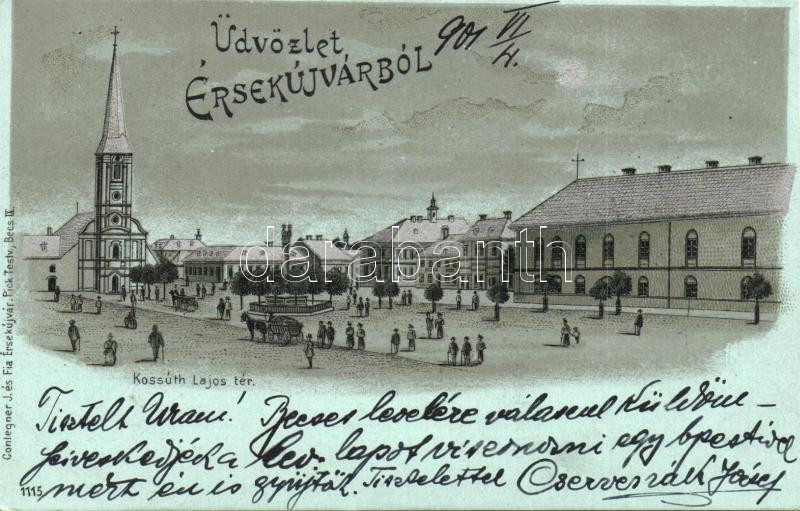 Üdvözlet
ÉRSEKÚJVÁRBÓL
901 VI/4.
darabanth.com
Kossúth Lajos tér.
Conlegner J. és Fia Érsekújvár. Pick Testv., Becs IX
Tisztelt Uram! Becses levelére válaszul Küldöm –
sziveskedjék a lev. lapot viszonozni egy bpestivel
mert én is gyüjtök. Tisztelettel József
1115